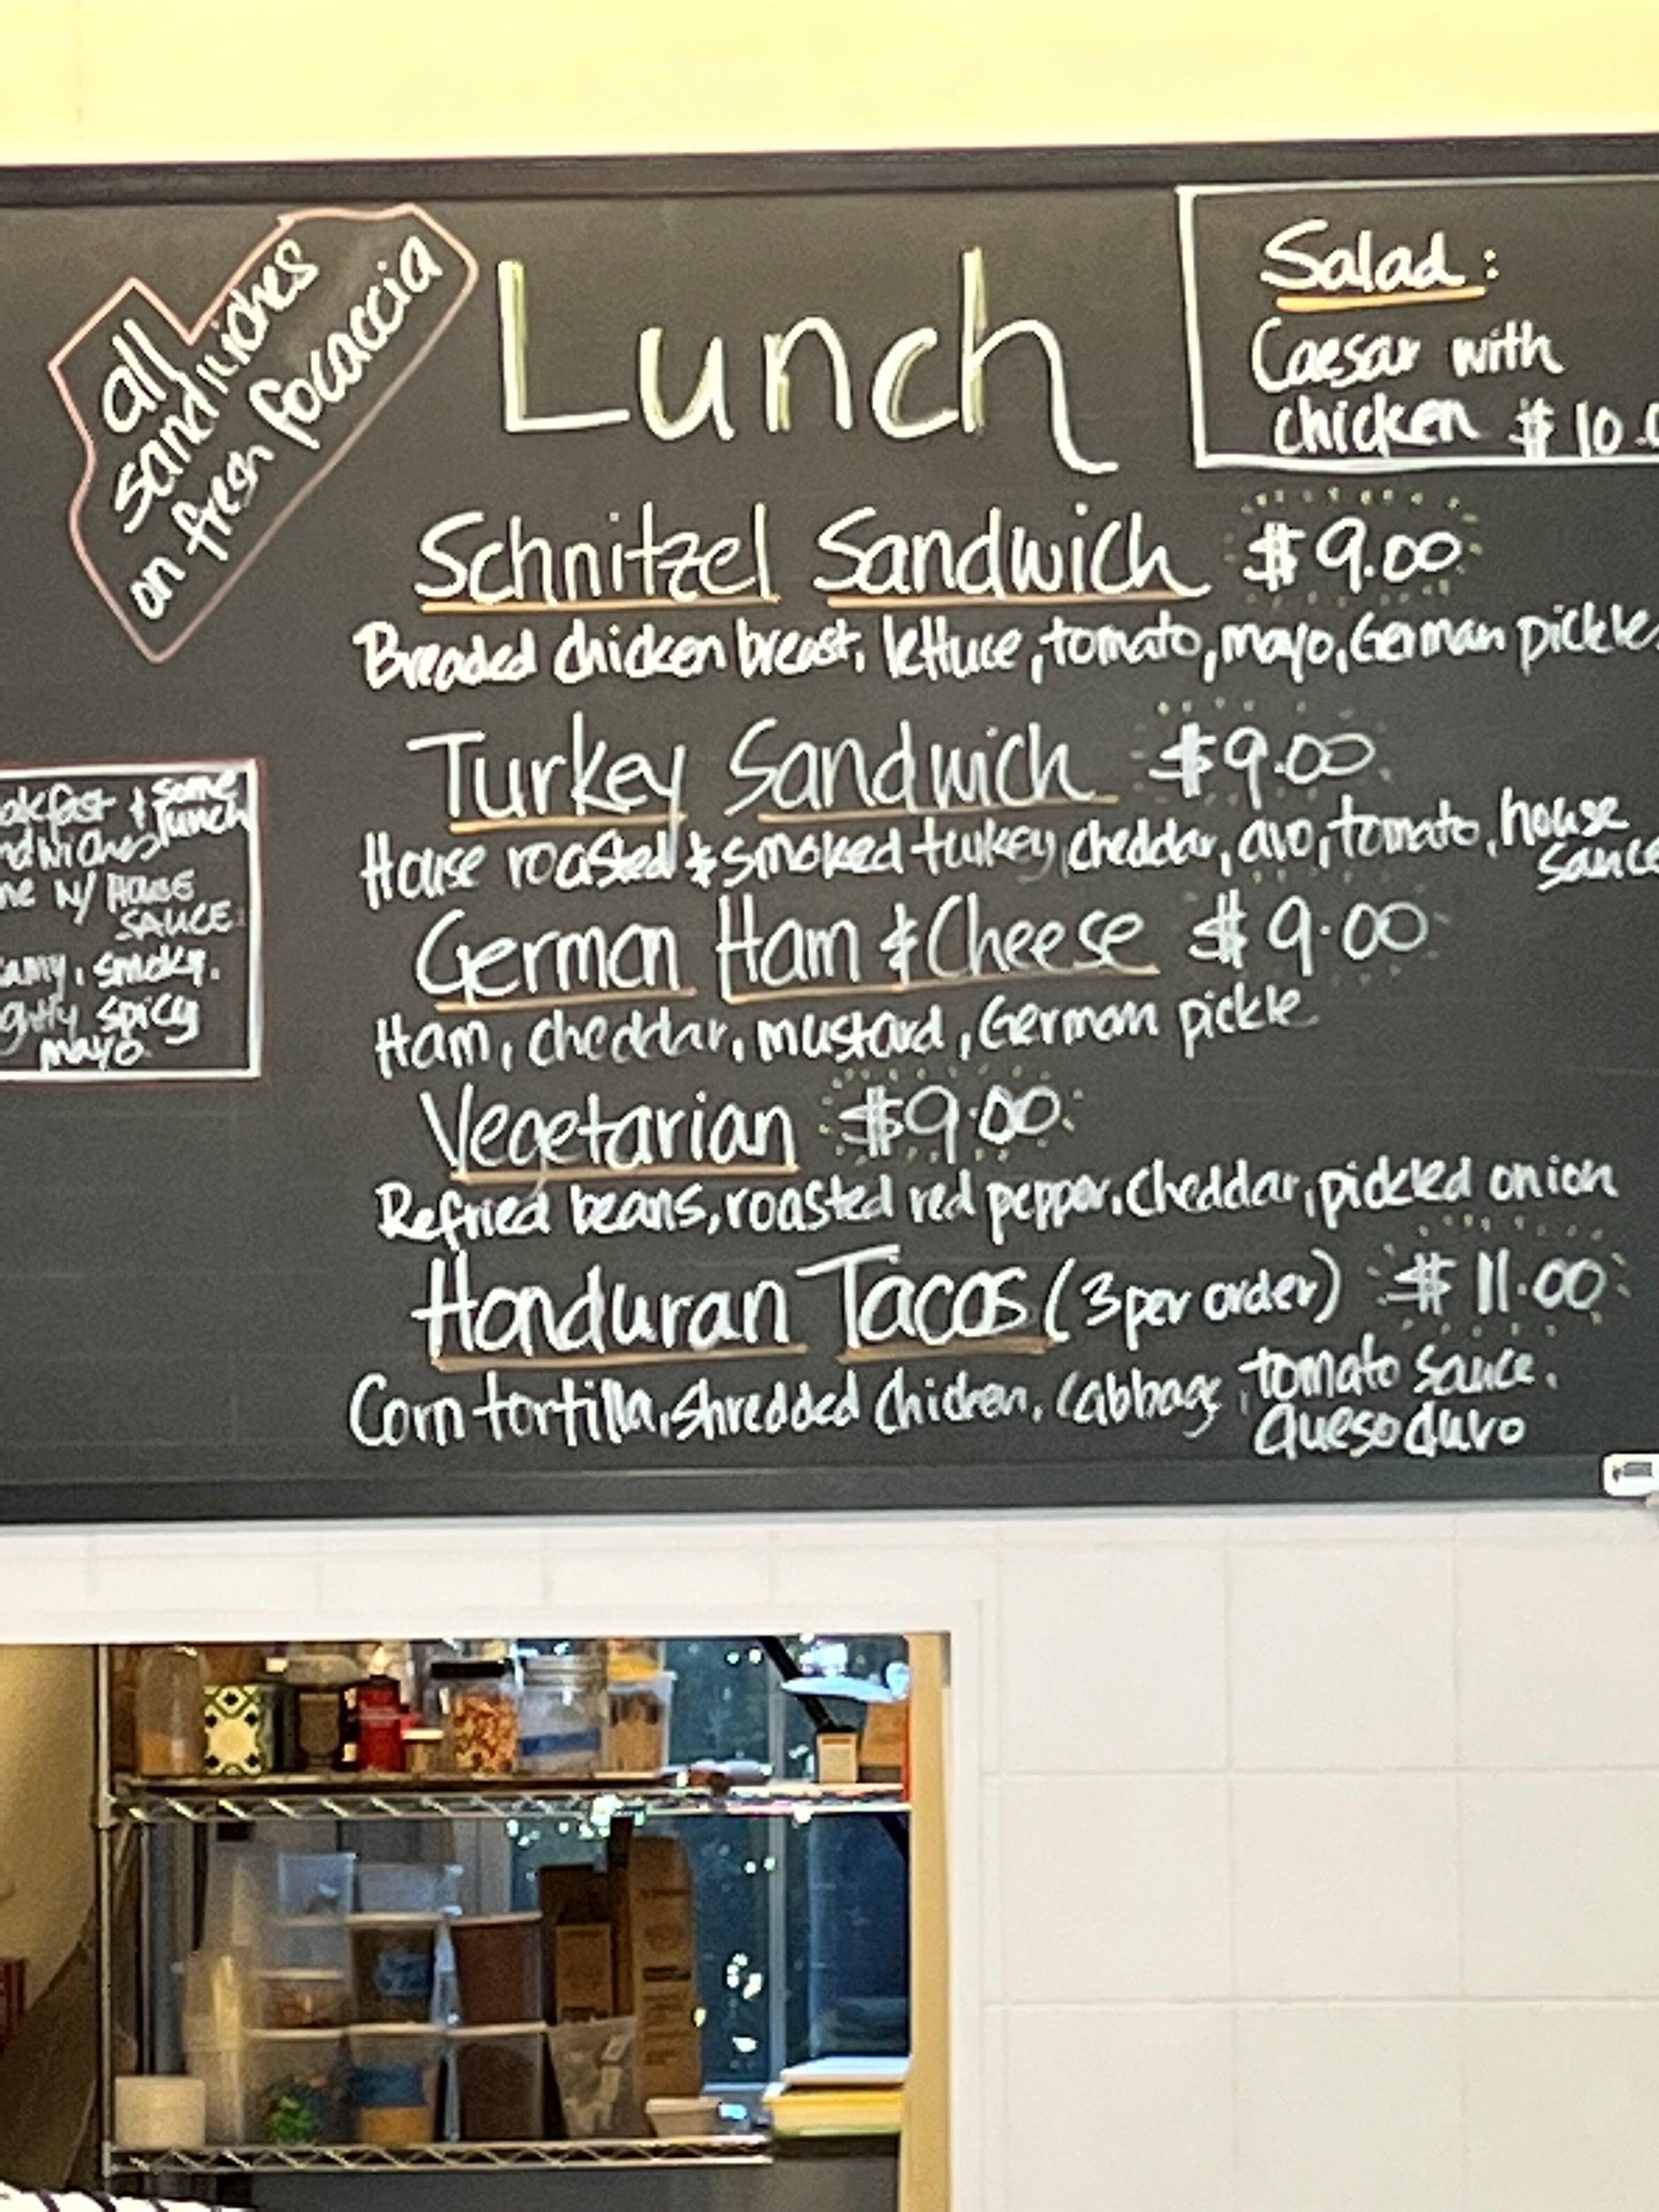 all
sandwiches
on fresh focaccia
Lunch
Salad:
Caesar with
chicken $10.0
Schnitzel Sandwich $9.00
Breaded chicken breast, lettuce, tomato, mayo, German pickles
Turkey Sandwich $9.00
House roasted & smoked turkey, cheddar, avo, tomato, house
sauce
German Ham & Cheese $9.00
Ham, cheddar, mustard, German pickle
Vegetarian $9.00
Refried beans, roasted red pepper, cheddar, pickled onion
Honduran Tacos (3 per order) $11.00
Corn tortilla, shredded chicken, cabbage, tomato sauce,
queso duro
akfast & some
lunch
ndwiches
me w/ HOUSE
SAUCE
amy, smoky,
ghtly spicy
mayo